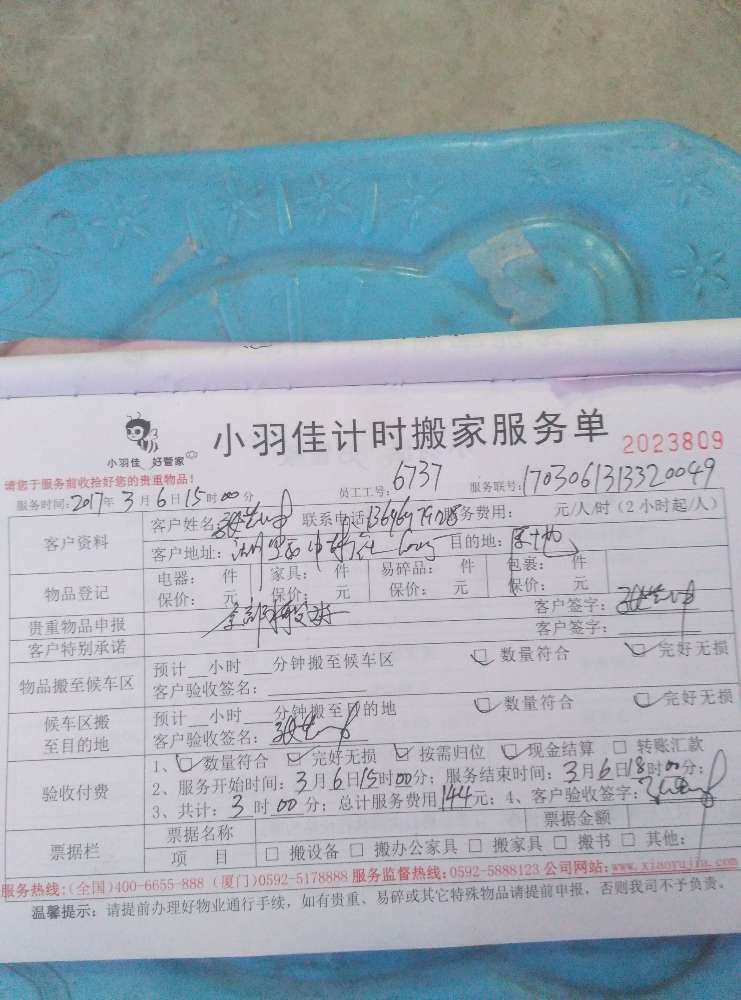 小羽佳 好管家
小羽佳计时搬家服务单 2023809
请您于服务前收拾好您的贵重物品!
服务时间: 2017年 3月 6日 15时 00分 员工工号: 6737 服务联号: 1703061313320049
客户资料 客户姓名: 联系电话: 服务费用: 元/人/时 (2小时起/人)
客户地址: 目的地:
物品登记 电器: 件 家具: 件 易碎品: 件 包裹: 件
保价: 元 保价: 元 保价: 元 保价: 元
贵重物品申报 客户签字:
客户特别承诺 客户签字:
物品搬至候车区 预计__小时___分钟搬至候车区 数量符合 完好无损
客户验收签名:
候车区搬至目的地 预计__小时___分钟搬至目的地 数量符合 完好无损
客户验收签名:
验收付费 1、数量符合 完好无损 按需归位 现金结算 □ 转账汇款
2、服务开始时间: 3月6日15时00分; 服务结束时间: 3月6日18时00分;
3、共计: 3 时 00 分; 总计服务费用 144元; 4、客户验收签字:
票据栏 票据名称 票据金额
项 目 □ 搬设备 □ 搬办公家具 □ 搬家具 □ 搬书 □ 其他:
服务热线: (全国)400-6655-888 (厦门)0592-5178888 服务监督热线: 0592-5888123 公司网站: www.xiaoyujia.com
温馨提示: 请提前办理好物业通行手续, 如有贵重、易碎或其它特殊物品请提前申报, 否则我司不予负责。